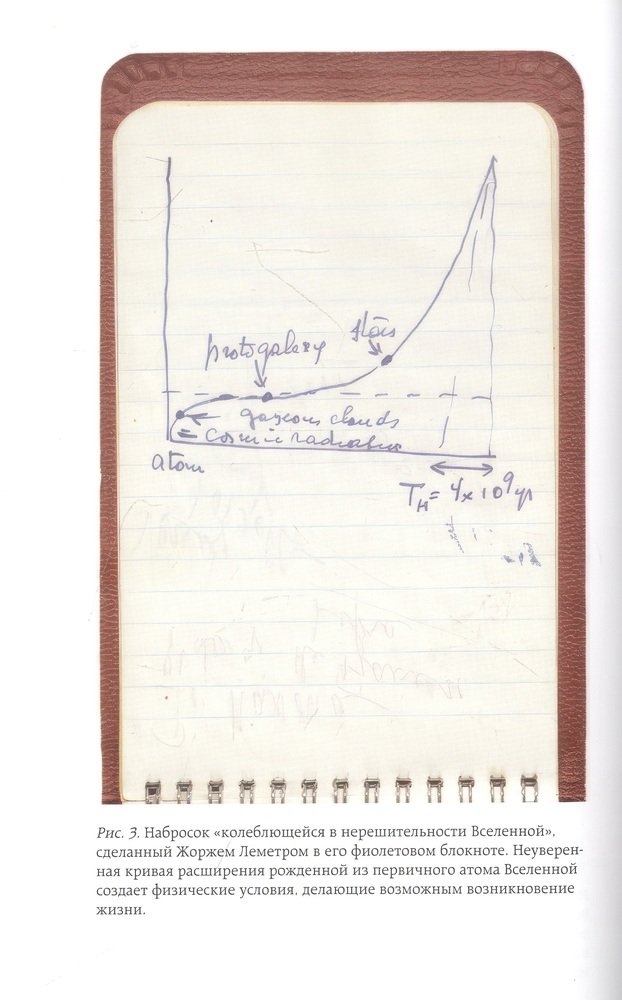 stars
protogalaxy
gaseous clouds
= cosmic radiation
atom
T_H = 4 x 10^9 yr
Рис. 3. Набросок «колеблющейся в нерешительности Вселенной»,
сделанный Жоржем Леметром в его фиолетовом блокноте. Неуверен-
ная кривая расширения рожденной из первичного атома Вселенной
создает физические условия, делающие возможным возникновение
жизни.